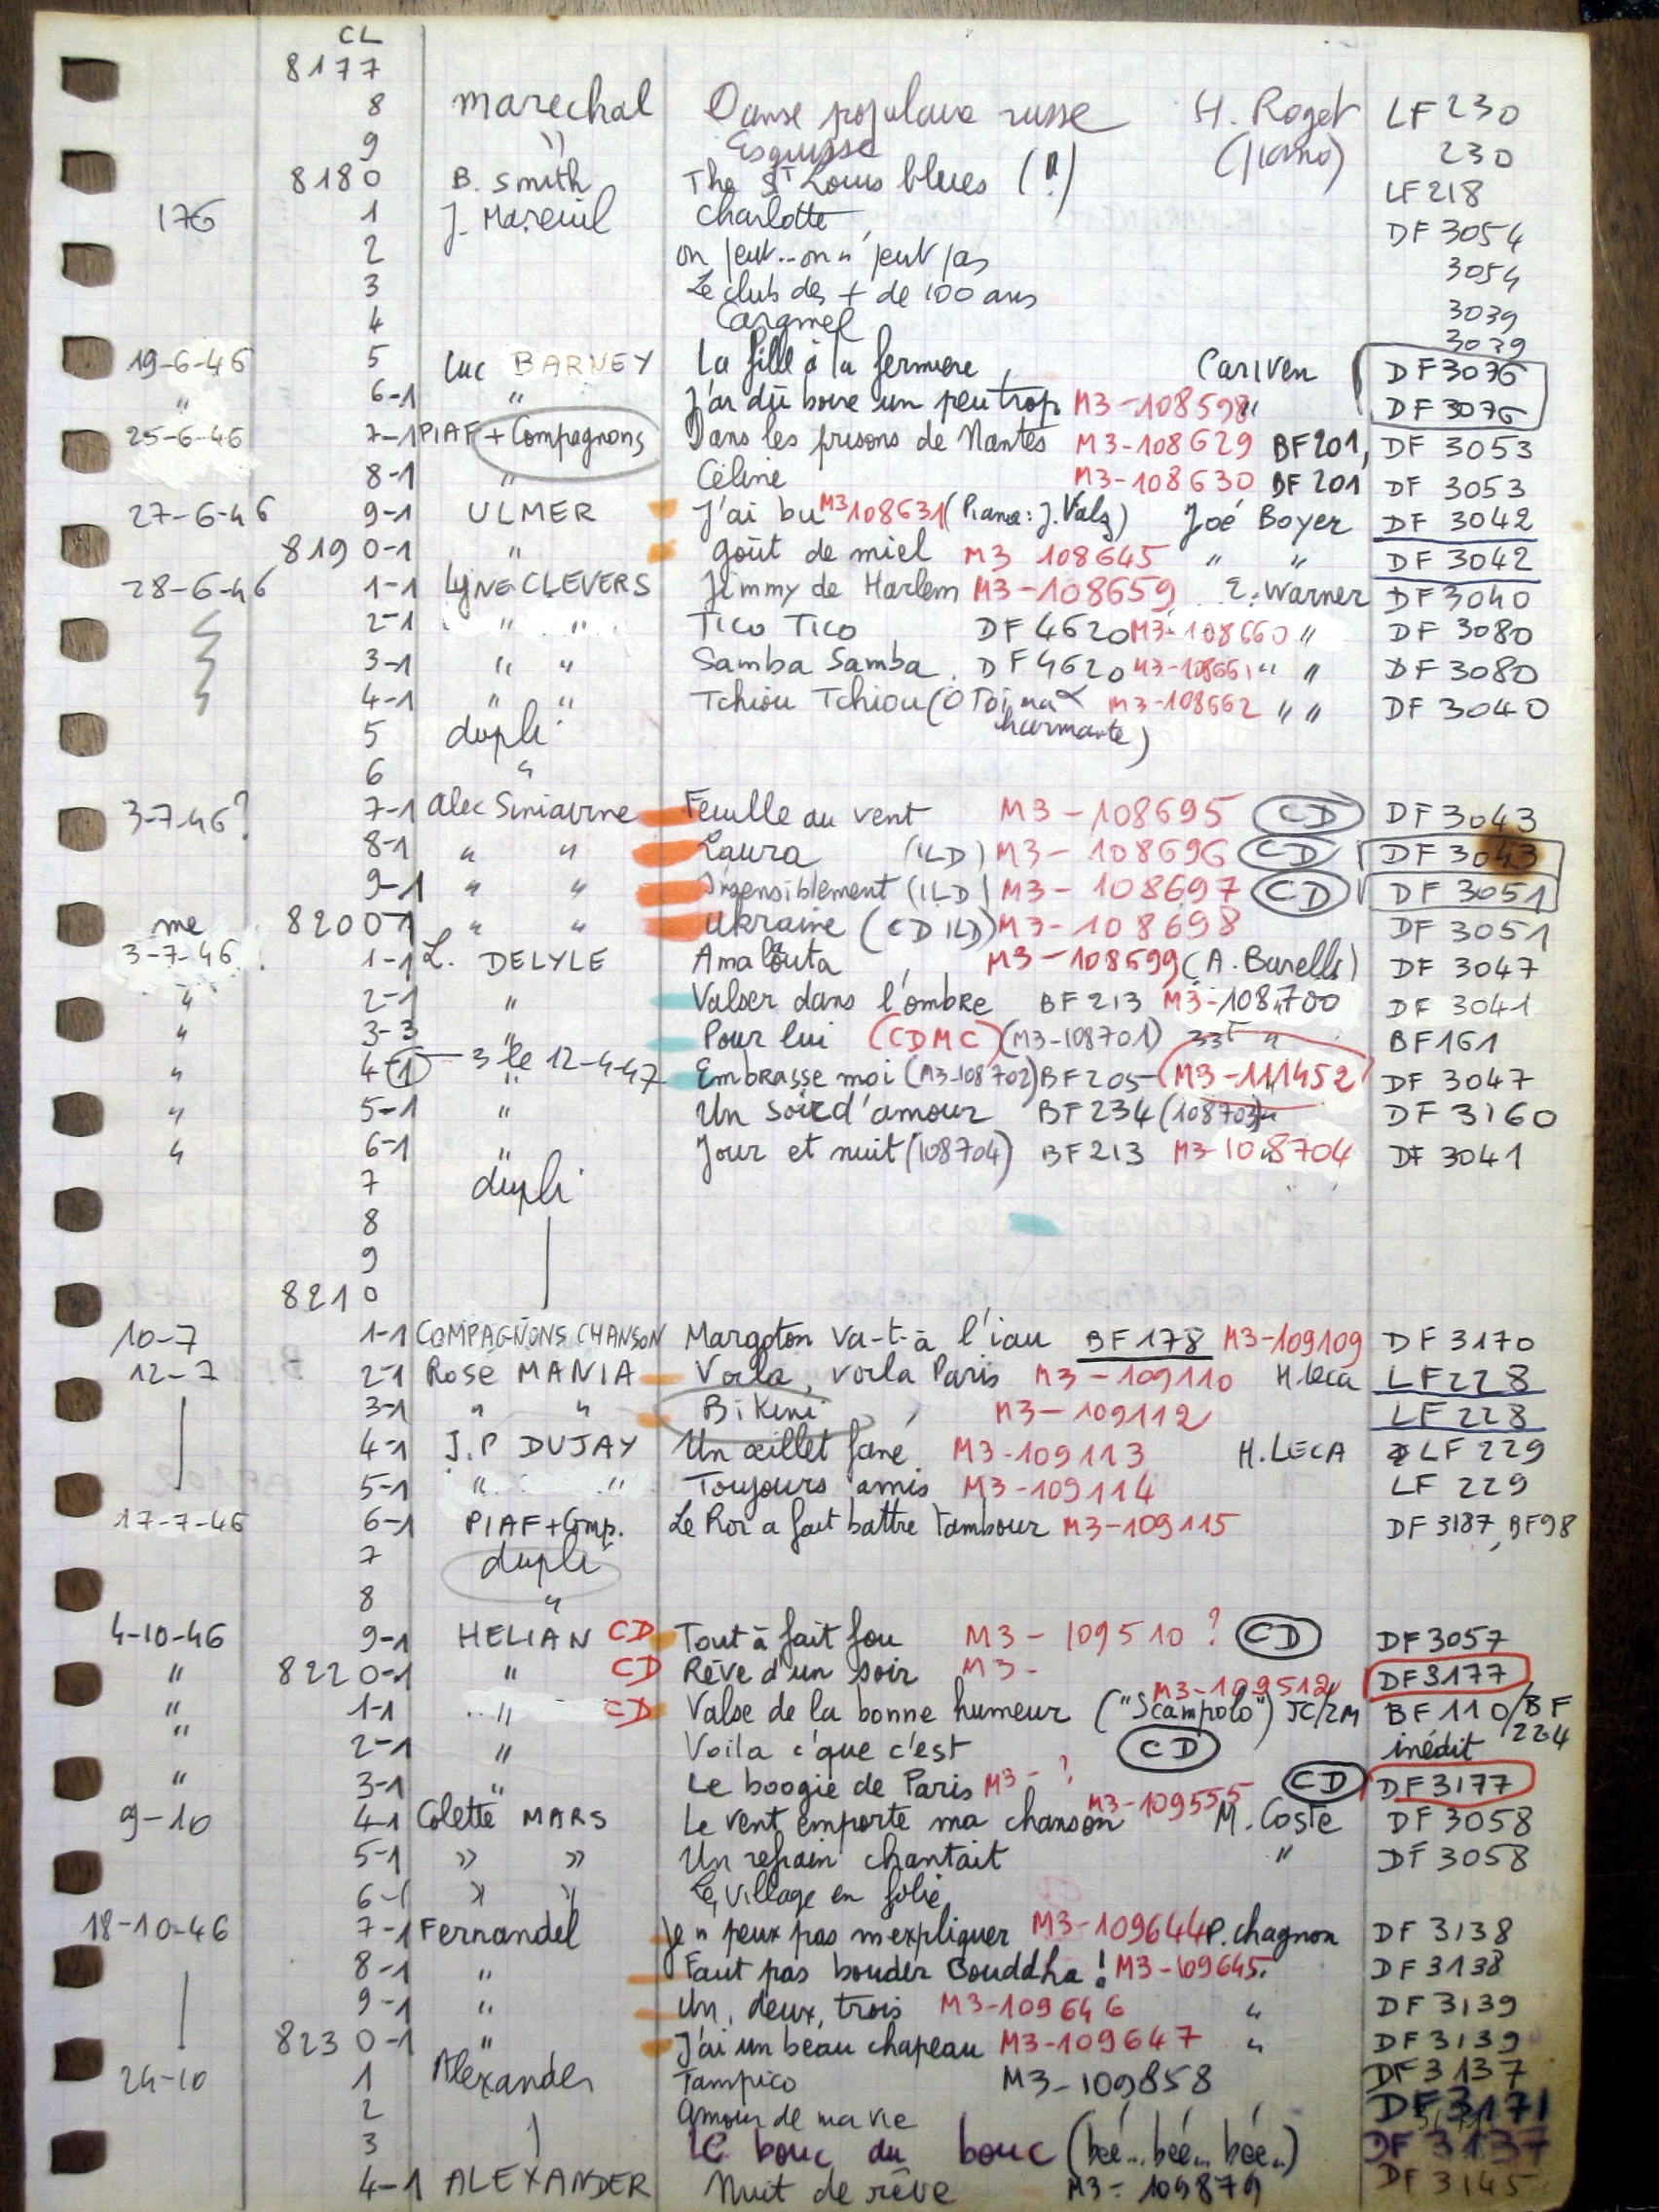 CL
8177
8 marechal Danse populaire russe H. Roget LF 230
9 " Esquisse (piano) 230
8180 B. Smith The St Louis blues (?) LF 218
176 1 J. Mareuil Charlotte DF 3054
2 on peut..on n'peut pas 3054
3 Le club des + de 100 ans 3039
4 Caramel 3039
19-6-46 5 Luc BARNEY La fille à la fermière Cariven DF 3076
" 6-1 " J'ai dû boire un peu trop M3-108598 " DF 3076
25-6-46 7-1 PIAF + Compagnons Dans les prisons de Nantes M3-108629 BF 201, DF 3053
8-1 " Céline M3-108630 BF 201 DF 3053
27-6-46 9-1 ULMER J'ai bu M3 108631 (Piano: J. Vals) Joé Boyer DF 3042
8190-1 " goût de miel M3 108645 " " DF 3042
28-6-46 1-1 Lyne CLEVERS Jimmy de Harlem M3-108659 E. Warner DF 3040
2-1 " " Tico Tico DF 4620 M3-108660 " DF 3080
3-1 " " Samba Samba. DF 4620 M3-108661 " " DF 3080
4-1 " " Tchiou Tchiou (O Toi, ma M3-108662 " " DF 3040
charmante)
5 dupli
6 "
3-7-46? 7-1 Alec Siniavine Feuille au vent M3-108695 CD DF 3043
8-1 " " Laura (ILD) M3-108696 CD DF 3043
9-1 " " Insensiblement (ILD) M3-108697 CD DF 3051
me 8200-1 " " Ukraine (CD ILD) M3-108698 DF 3051
3-7-46 1-1 L. DELYLE Amalouta M3-108699 (A. Barelli) DF 3047
" 2-1 " Valser dans l'ombre BF 213 M3-108700 DF 3041
" 3-3 " Pour lui (CDMC) (M3-108701) 33T " BF 161
" 4-1 — 3 le 12-4-47 " Embrasse moi (M3-108702) BF 205 - M3-111452 DF 3047
" 5-1 " Un soir d'amour BF 234 (108703) " DF 3160
" 6-1 " Jour et nuit (108704) BF 213 M3-108704 DF 3041
7 dupli
8
9
8210
10-7 1-1 COMPAGNONS CHANSON Margoton va-t-à l'iau BF 178 M3-109109 DF 3170
12-7 2-1 Rose MANIA Voila, voila Paris M3-109110 H. Leca LF 228
3-1 " " Bikini M3-109112 LF 228
4-1 J.P DUJAY Un œillet fané M3-109113 H. LECA LF 229
5-1 " " Toujours amis M3-109114 LF 229
17-7-46 6-1 PIAF + Comp. Le Roi a fait battre tambour M3-109115 DF 3187, BF 98
7 dupli
8 "
4-10-46 9-1 HELIAN CD Tout à fait fou M3-109510 ? CD DF 3057
" 8220-1 " CD Rêve d'un soir M3- DF 3177
" 1-1 " CD Valse de la bonne humeur ("Scampolo") M3-109512 JC/2M BF 110/BF 224
" 2-1 " Voila c'que c'est CD inédit
" 3-1 " Le boogie de Paris M3-? CD DF 3177
9-10 4-1 Colette MARS Le vent emporte ma chanson M3-109555 M. Coste DF 3058
5-1 " " Un refrain chantait " DF 3058
6-1 " " Le village en folie
18-10-46 7-1 Fernandel Je n'peux pas m'expliquer M3-109644 P. Chagnon DF 3138
8-1 " Faut pas bouder Bouddha! M3-109645 DF 3138
9-1 " Un, deux, trois M3-109646 " DF 3139
8230-1 " J'ai un beau chapeau M3-109647 " DF 3139
24-10 1 Alexander Tampico M3-109858 DF 3137
2 Amour de ma vie DF 3171
3 Le bouc du bouc (béé... béé... béé..) DF 3137
4-1 ALEXANDER Nuit de rêve M3-109879 DF 3145